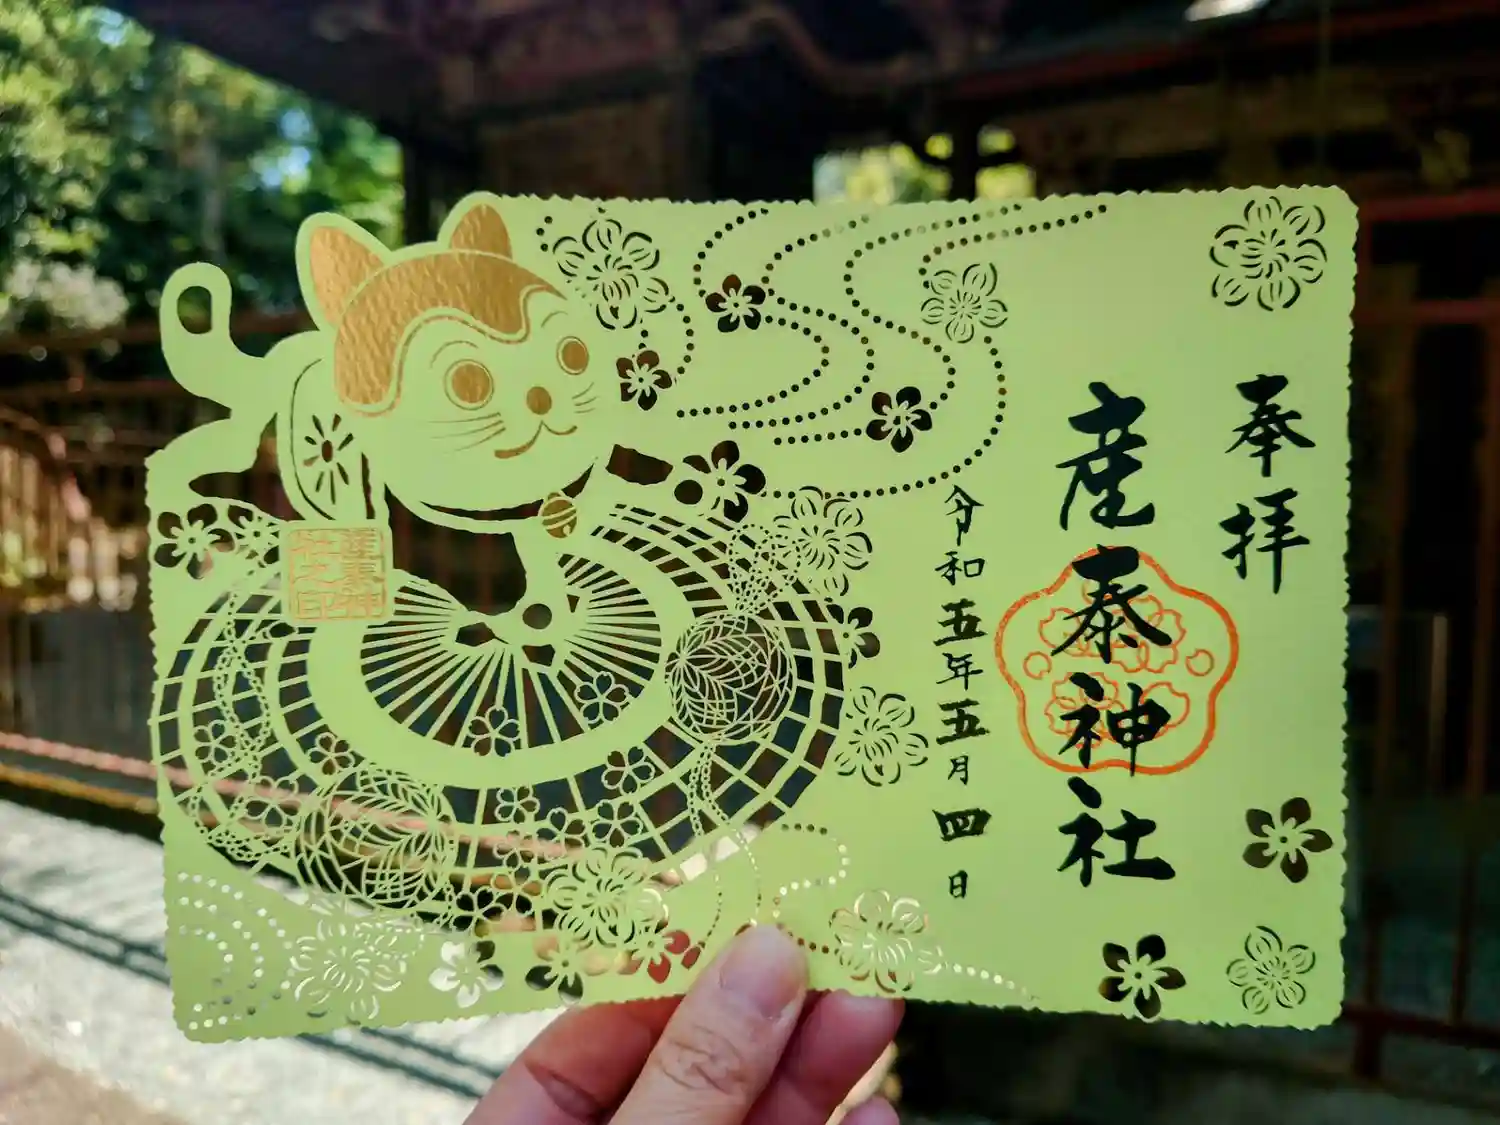 奉拝
産泰神社
令和五年五月四日
産泰神社之印